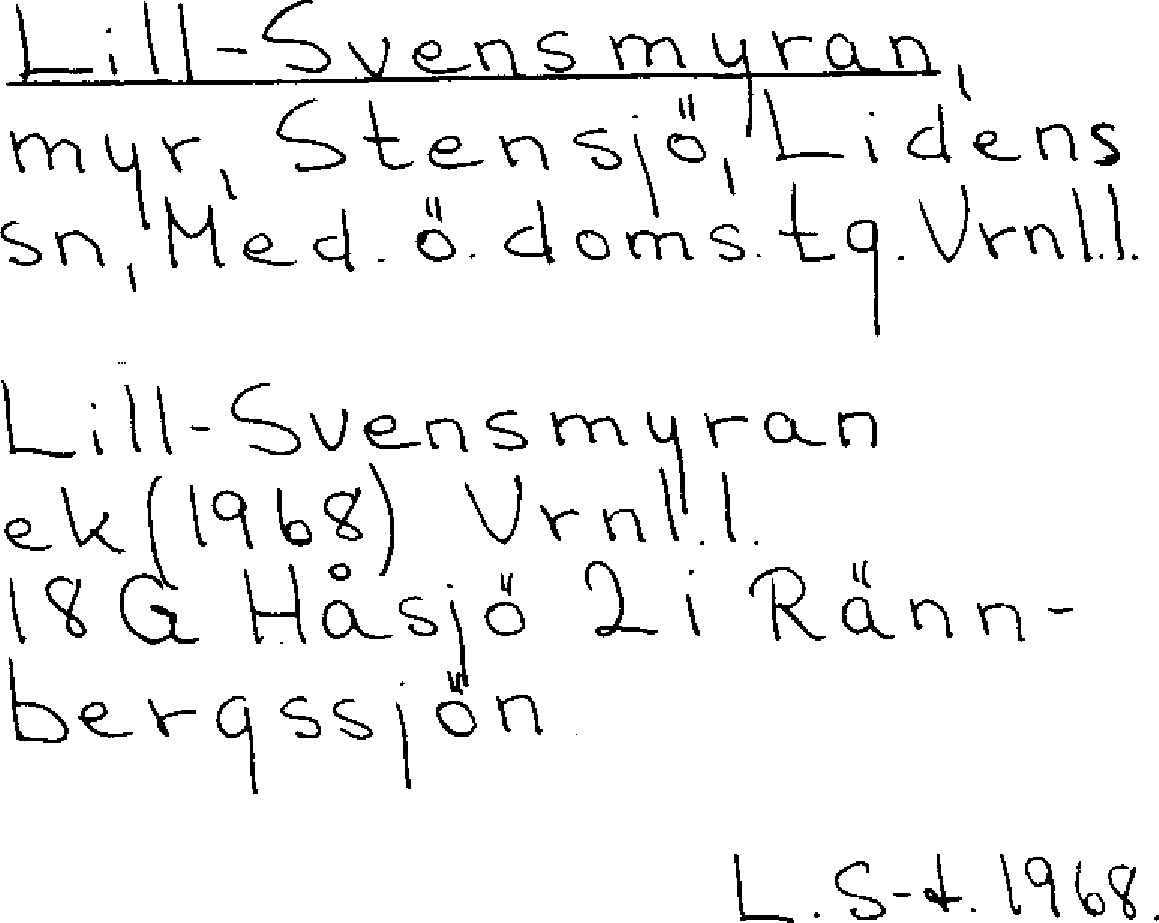 Lill-Svensmyran,
myr, Stensjö, Lidens
sn, Med. ö. doms. tg. Vrnl.l.
Lill-Svensmyran
ek (1968) Vrnl.l.
18G Håsjö 2i Ränn-
bergssjön
L. S-t. 1968.